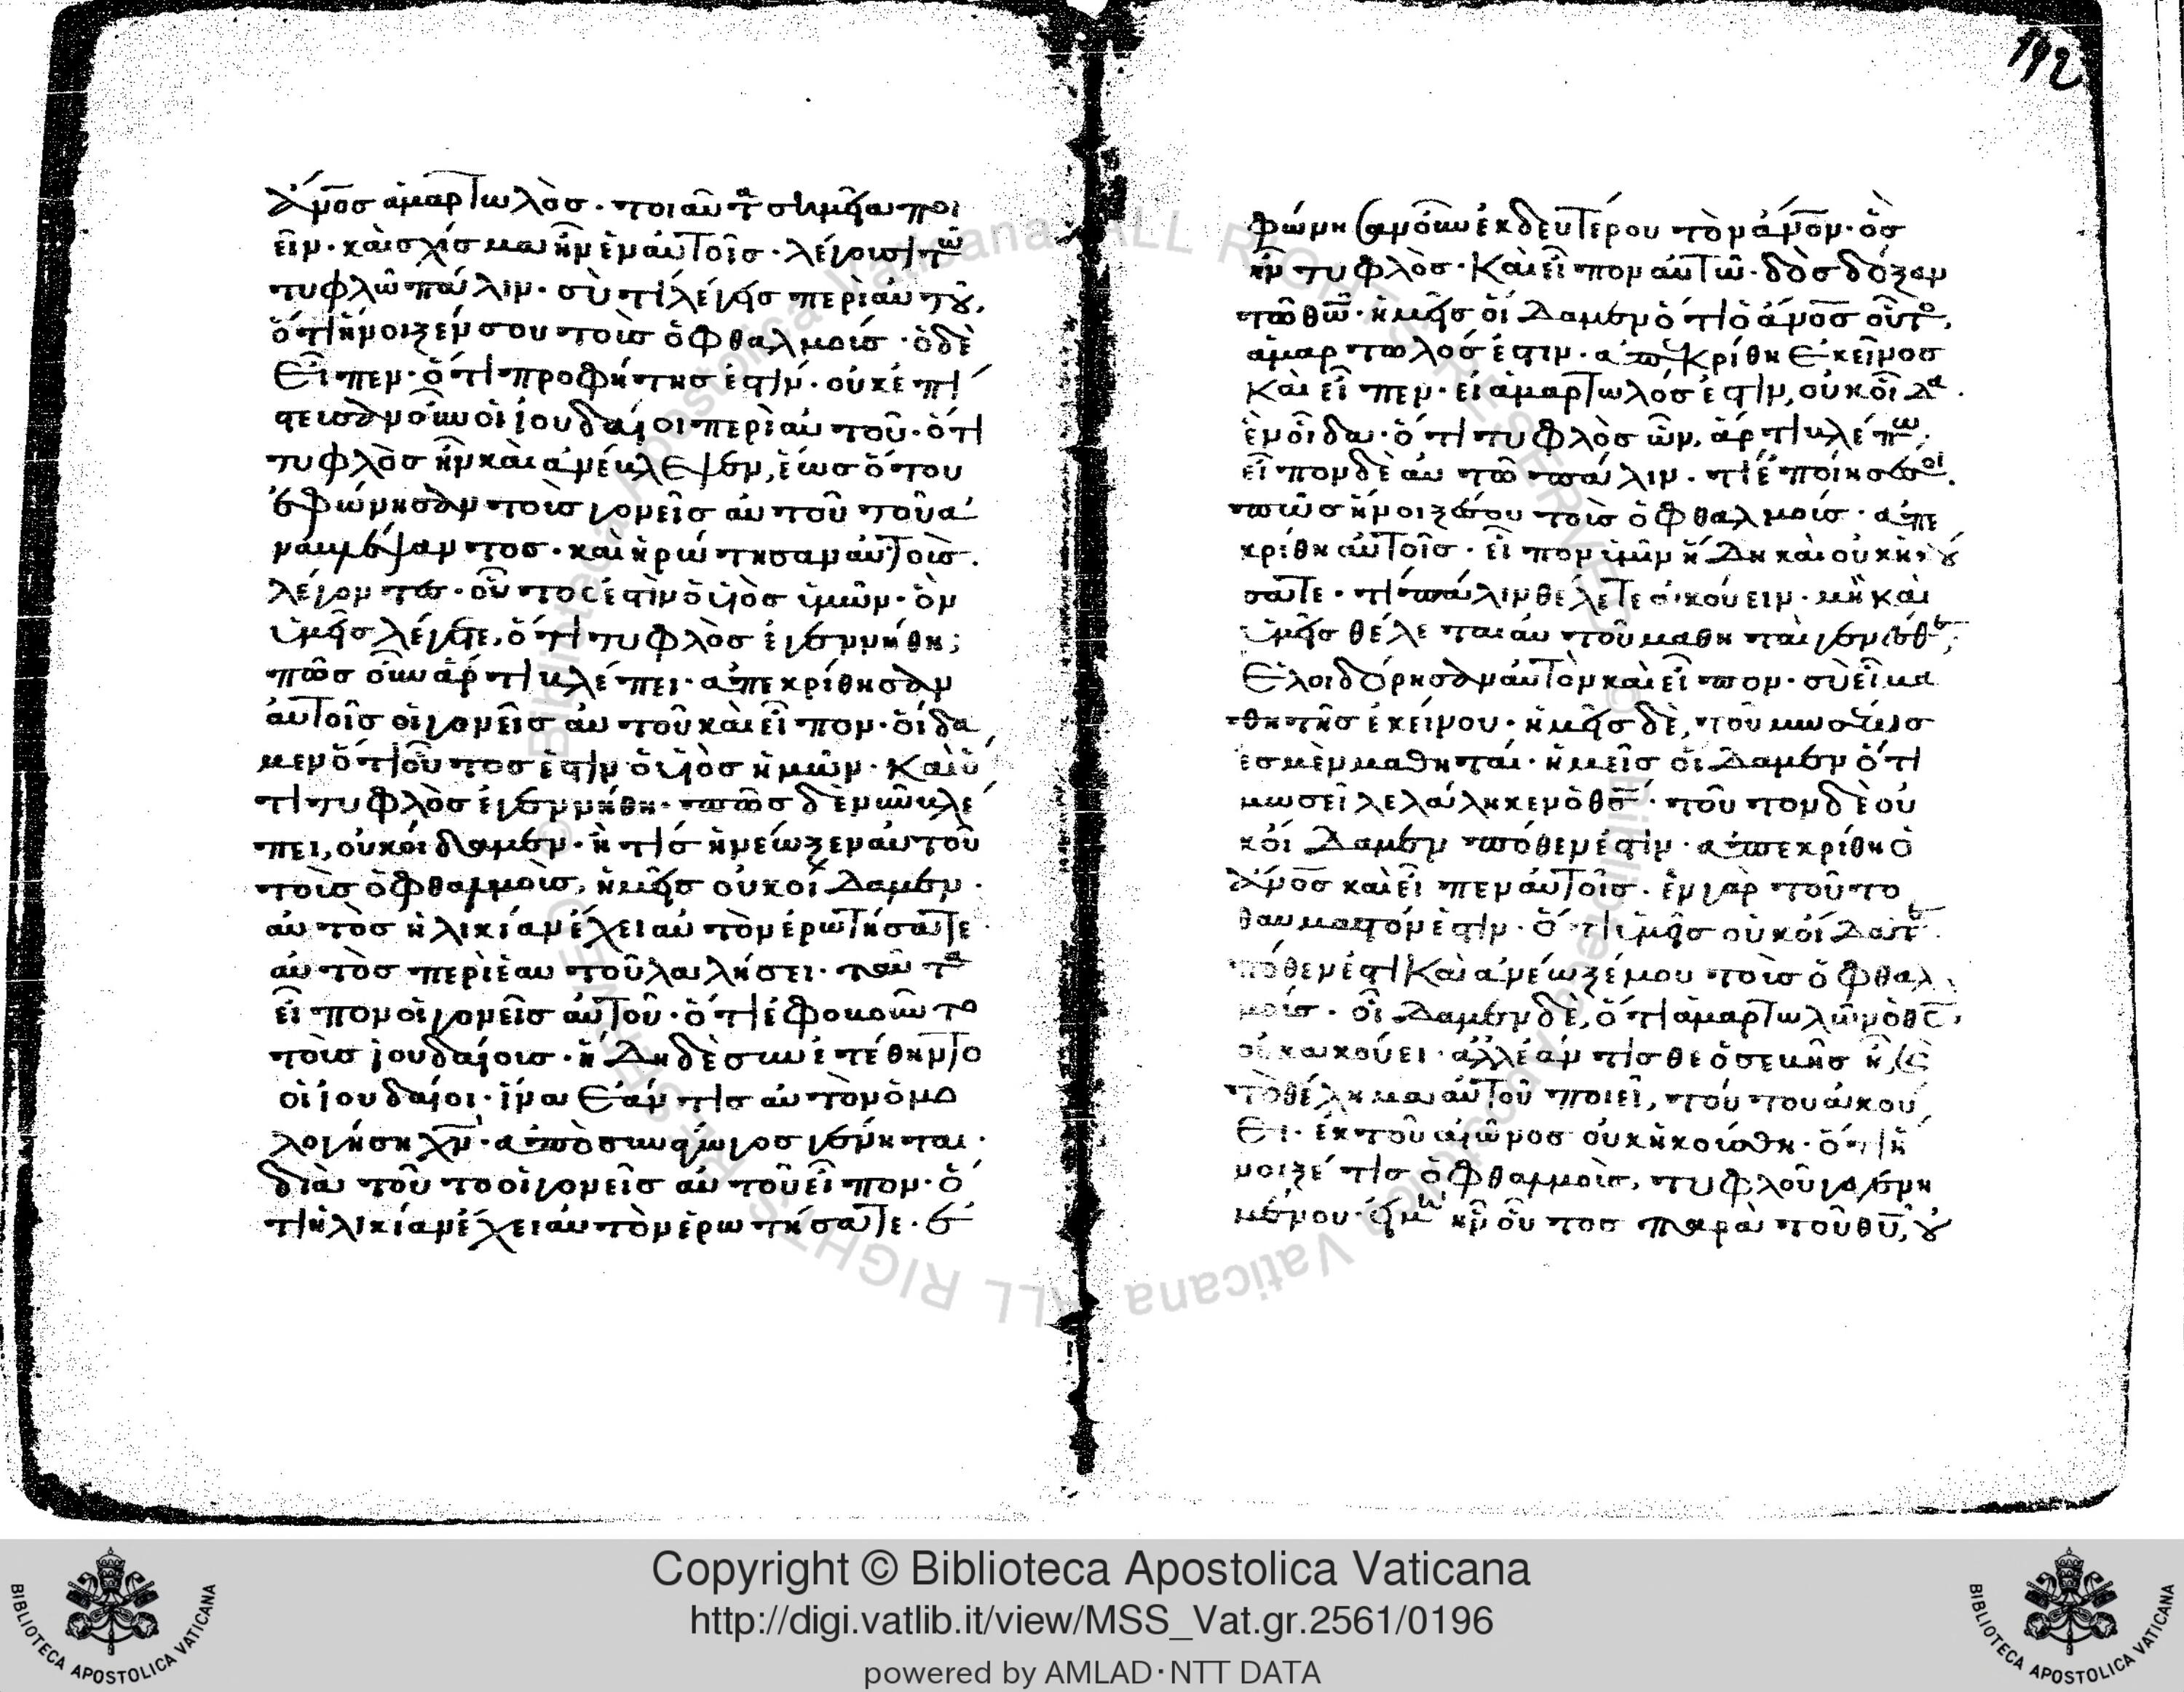 ἄνο̅σ ἁμαρτωλὸσ· τοιαῦτα σημεῖα ποι
εῖν· καὶ σχίσμα ἦν ἐν αὐτοῖσ· λέγουσι τῶ
τυφλῶ πάλιν· σὺ τί λέγεισ περὶ αὐτοῦ,
ὅτι ἤνοιξέν σου τοὺσ ὀφθαλμούσ· ὁ δὲ
εἶπεν· ὅτι προφήτησ ἐστίν· οὐκ ἐπί
στευσαν οὖν οἱ ἰουδαῖοι περὶ αὐτοῦ· ὅτι
τυφλὸσ ἦν καὶ ἀνέβλεψεν, ἕωσ ὅτου
ἐφώνησαν τοὺσ γονεῖσ αὐτοῦ τοῦ ἀ
ναβλέψαντοσ· καὶ ἠρώτησαν αὐτοὺσ·
λέγοντεσ· οὗτοσ ἐστὶν ὁ υἱὸσ ὑμῶν· ὃν
ὑμεῖσ λέγετε, ὅτι τυφλὸσ ἐγεννήθη;
πῶσ οὖν ἄρτι βλέπει· ἀπεκρίθησαν
αὐτοῖσ οἱ γονεῖσ αὐτοῦ καὶ εἶπον· οἴδα
μεν ὅτι οὗτοσ ἐστὶν ὁ υἱὸσ ἡμῶν· καὶ ὅ
τι τυφλὸσ ἐγεννήθη· πῶσ δὲ νῦν βλέ
πει, οὐκ οἴδαμεν· ἢ τίσ ἠνέωξεν αὐτοῦ
τοὺσ ὀφθαλμοὺσ, ἡμεῖσ οὐκ οἴδαμεν·
αὐτὸσ ἡλικίαν ἔχει αὐτὸν ἐρωτήσατε·
αὐτὸσ περὶ ἑαυτοῦ λαλήσει· ταῦτα
εἶπον οἱ γονεῖσ αὐτοῦ· ὅτι ἐφοβοῦντο
τοὺσ ἰουδαίουσ· ἤδη δὲ συνετέθηντο
οἱ ἰουδαῖοι· ἵνα ἐάν τισ αὐτὸν ὁμο
λογήση χν̅· ἀποσυνάγωγοσ γένηται·
διὰ τοῦτο οἱ γονεῖσ αὐτοῦ εἶπον· ὅ
τι ἡλικίαν ἔχει αὐτὸν ἐρωτήσατε· ἐ
φώνησαν οὖν ἐκ δευτέρου τὸν ἄνο̅ν· ὃσ
ἦν τυφλὸσ· καὶ εἶπον αὐτῶ· δὸσ δόξαν
τῶ θω̅· ἡμεῖσ οἴδαμεν ὅτι ὁ ἄνο̅σ οὗτοσ,
ἁμαρτωλόσ ἐστιν· ἀπεκρίθη ἐκεῖνοσ
καὶ εἶπεν· εἰ ἁμαρτωλόσ ἐστιν, οὐκ οἶδα·
ἓν οἶδα· ὅτι τυφλὸσ ὢν, ἄρτι βλέπω·
εἶπον δὲ αὐτῶ πάλιν· τί ἐποίησέ σοι.
πῶσ ἤνοιξέ σου τοὺσ ὀφθαλμούσ· ἀπε
κρίθη αὐτοῖσ· εἶπον ὑμῖν ἤδη καὶ οὐκ ἠκού
σατε· τί πάλιν θέλετε ἀκούειν· μὴ καὶ
ὑμεῖσ θέλετε αὐτοῦ μαθηταὶ γενέσθε;
ἐλοιδόρησαν αὐτὸν καὶ εἶπον· σὺ εἶ μα
θητὴσ ἐκείνου· ἡμεῖσ δὲ, τοῦ μωσέωσ
ἐσμὲν μαθηταί· ἡμεῖσ οἴδαμεν ὅτι
μωσεῖ λελάληκεν ὁ θσ̅· τοῦτον δὲ οὐ
κ οἴδαμεν πόθεν ἐστίν· ἀπεκρίθη ὁ
ἄνο̅σ καὶ εἶπεν αὐτοῖσ· ἐν γὰρ τοῦτο
θαυμαστόν ἐστιν· ὅτι ὑμεῖσ οὐκ οἴδατε
πόθεν ἐστὶ καὶ ἀνέωξέ μου τοὺσ ὀφθαλ
μούσ· οἴδαμεν δὲ, ὅτι ἁμαρτωλῶν ὁ θσ̅,
οὐκ ἀκούει· ἀλλ' ἐάν τισ θεοσεβὴσ ἦ, καὶ
τὸ θέλημα αὐτοῦ ποιεῖ, τούτου ἀκού
ει· ἐκ τοῦ αἰῶνοσ οὐκ ἠκούσθη· ὅτι ἤ
νοιξέ τισ ὀφθαλμοὺσ, τυφλοῦ γεγεννη
μένου· εἰ μὴ ἦν οὗτοσ παρὰ τοῦ θυ̅, οὐ
192
Copyright © Biblioteca Apostolica Vaticana
http://digi.vatlib.it/view/MSS_Vat.gr.2561/0196
powered by AMLAD·NTT DATA
BIBLIOTECA APOSTOLICA VATICANA
BIBLIOTECA APOSTOLICA VATICANA